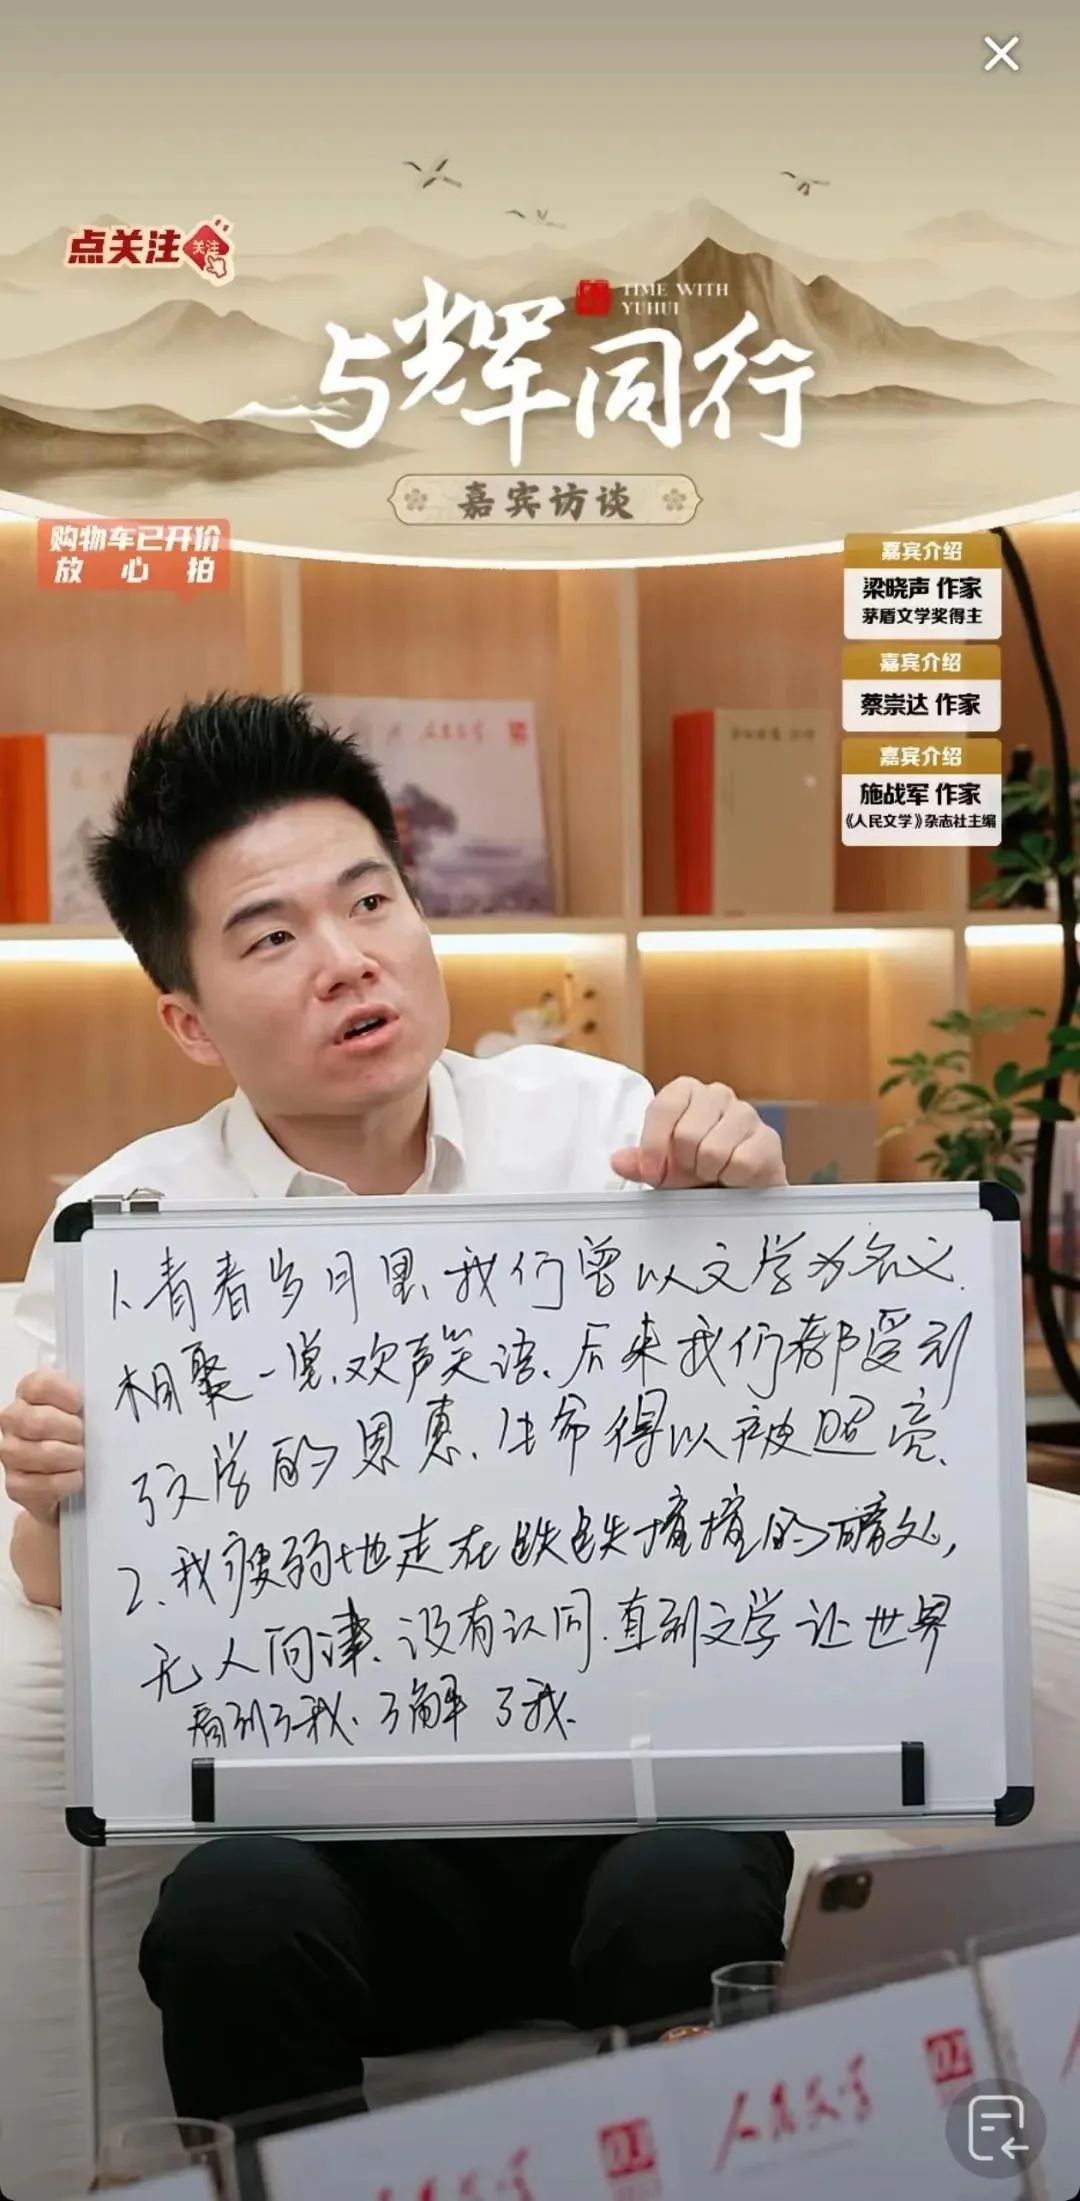 点关注
关注
TIME WITH
YUHUI
与辉同行
嘉宾访谈
购物车已开价
放心拍
嘉宾介绍
梁晓声 作家
茅盾文学奖得主
嘉宾介绍
蔡崇达 作家
嘉宾介绍
施战军 作家
《人民文学》杂志社主编
人民文学
1、青春岁月里、我们曾以文学为名义、
相聚一堂、欢声笑语、后来我们都受到
了文学的恩惠、生命得以被照亮、
2、我疲弱地走在跌跌撞撞的暗处,
无人问津、没有认同、直到文学让世界
看到了我、了解了我、
人民文学
人民文学